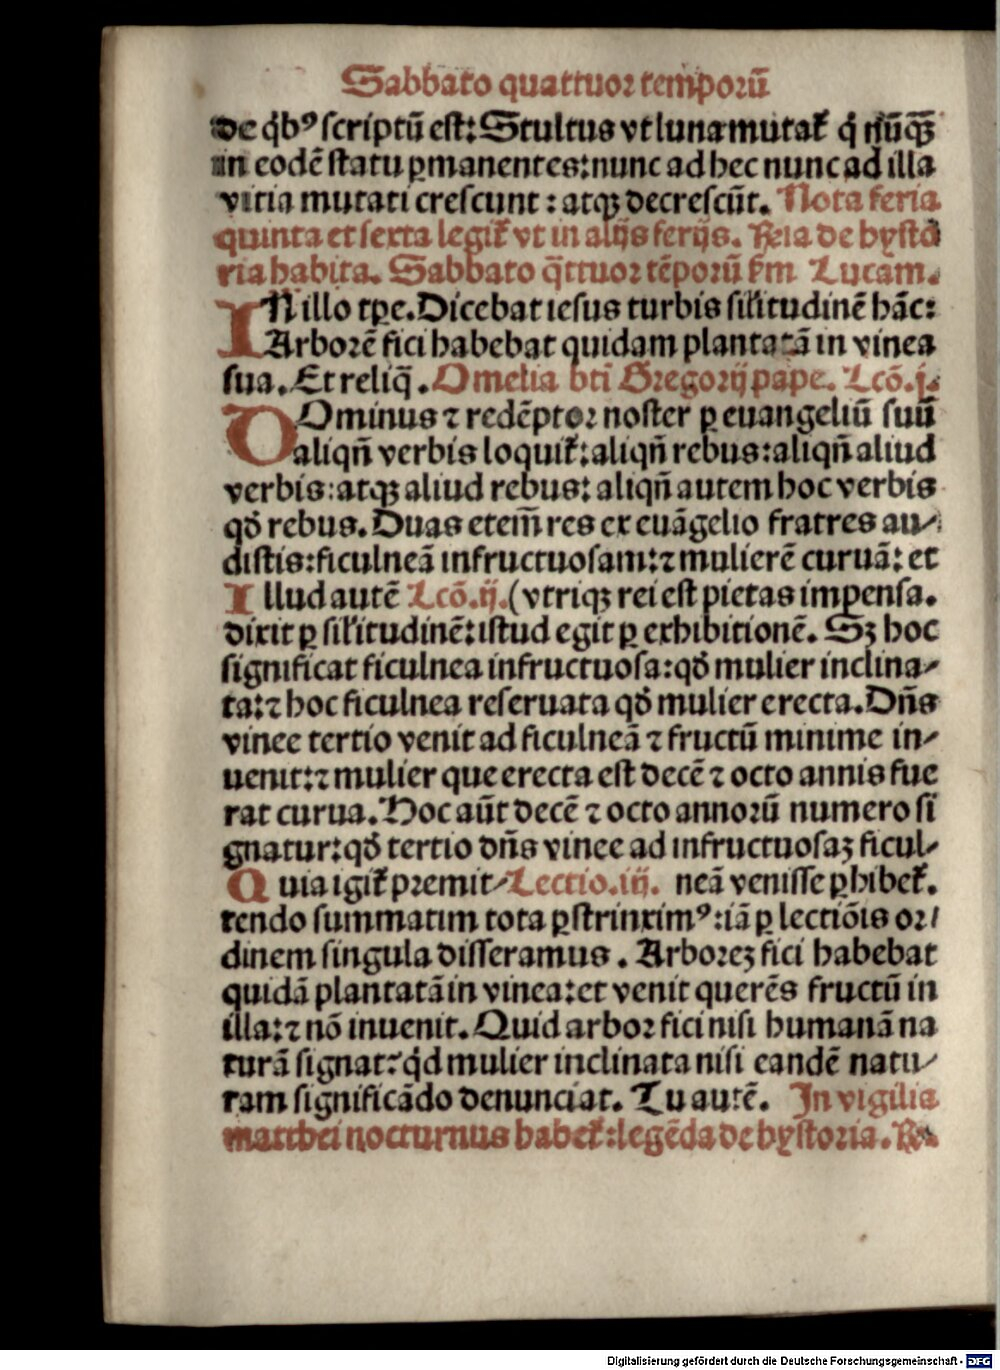 Sabbato quattuor temporū
de q̇bꝰ scriptū est: Stultus vt luna mutat᷑ q̇ nūq̄ꝫ
in eodē statu ꝑmanentes: nunc ad hec nunc ad illa
vitia mutati crescunt: atqꝫ decrescūt. Nota feria
quinta et sexta legit᷑ vt in alijs ferijs. Rel̄a de hysto
ria habita. Sabbato q̄ttuor tēporū ẜm Lucam.
IN illo tꝑe. Dicebat iesus turbis sil'itudinē hāc:
Arborē fici habebat quidam plantatā in vinea
sua. Et reliq̄. Omelia bt̄i Gregorij pape. Lcō.j.
DOminus ⁊ redēptor noster ꝑ euangeliū suū
aliqn̄ verbis loquit᷑: aliqn̄ rebus: aliqn̄ aliud
verbis: atqꝫ aliud rebus: aliqn̄ autem hoc verbis
qď rebus. Duas etem̄ res ex euāgelio fratres au⸗
distis: ficulneā infructuosam: ⁊ mulierē curuā: et
Illud autē Lcō.ij. (vtriqꝫ rei est pietas impensa.
dixit ꝑ sil'itudinē: istud egit ꝑ exhibitionē. Sꝫ hoc
significat ficulnea infructuosa: qď mulier inclina⸗
ta: ⁊ hoc ficulnea reseruata qď mulier erecta. Dn̄s
vinee tertio venit ad ficulneā ⁊ fructū minime in⸗
uenit: ⁊ mulier que erecta est decē ⁊ octo annis fue
rat curua. Hoc aūt decē ⁊ octo annorū numero si
gnatur: qď tertio dn̄s vinee ad infructuosaꝫ ficul⸗
Quia igit᷑ premit⸗ Lectio.iij. neā venisse ꝑhibet᷑.
tendo summatim tota ꝑstrinximꝰ: iā ꝑ lectiōis or⸗
dinem singula disseramus. Arboreꝫ fici habebat
quidā plantatā in vinea: et venit querēs fructū in
illa: ⁊ nō inuenit. Quid arbor fici nisi humanā na
turā signat: q̇d mulier inclinata nisi eandē natu⸗
ram significādo denunciat. Tu autē. In vigilia
matthei nocturnus habet᷑: legēda de hystoria. Re
Digitalisierung gefördert durch die Deutsche Forschungsgemeinschaft - DFG